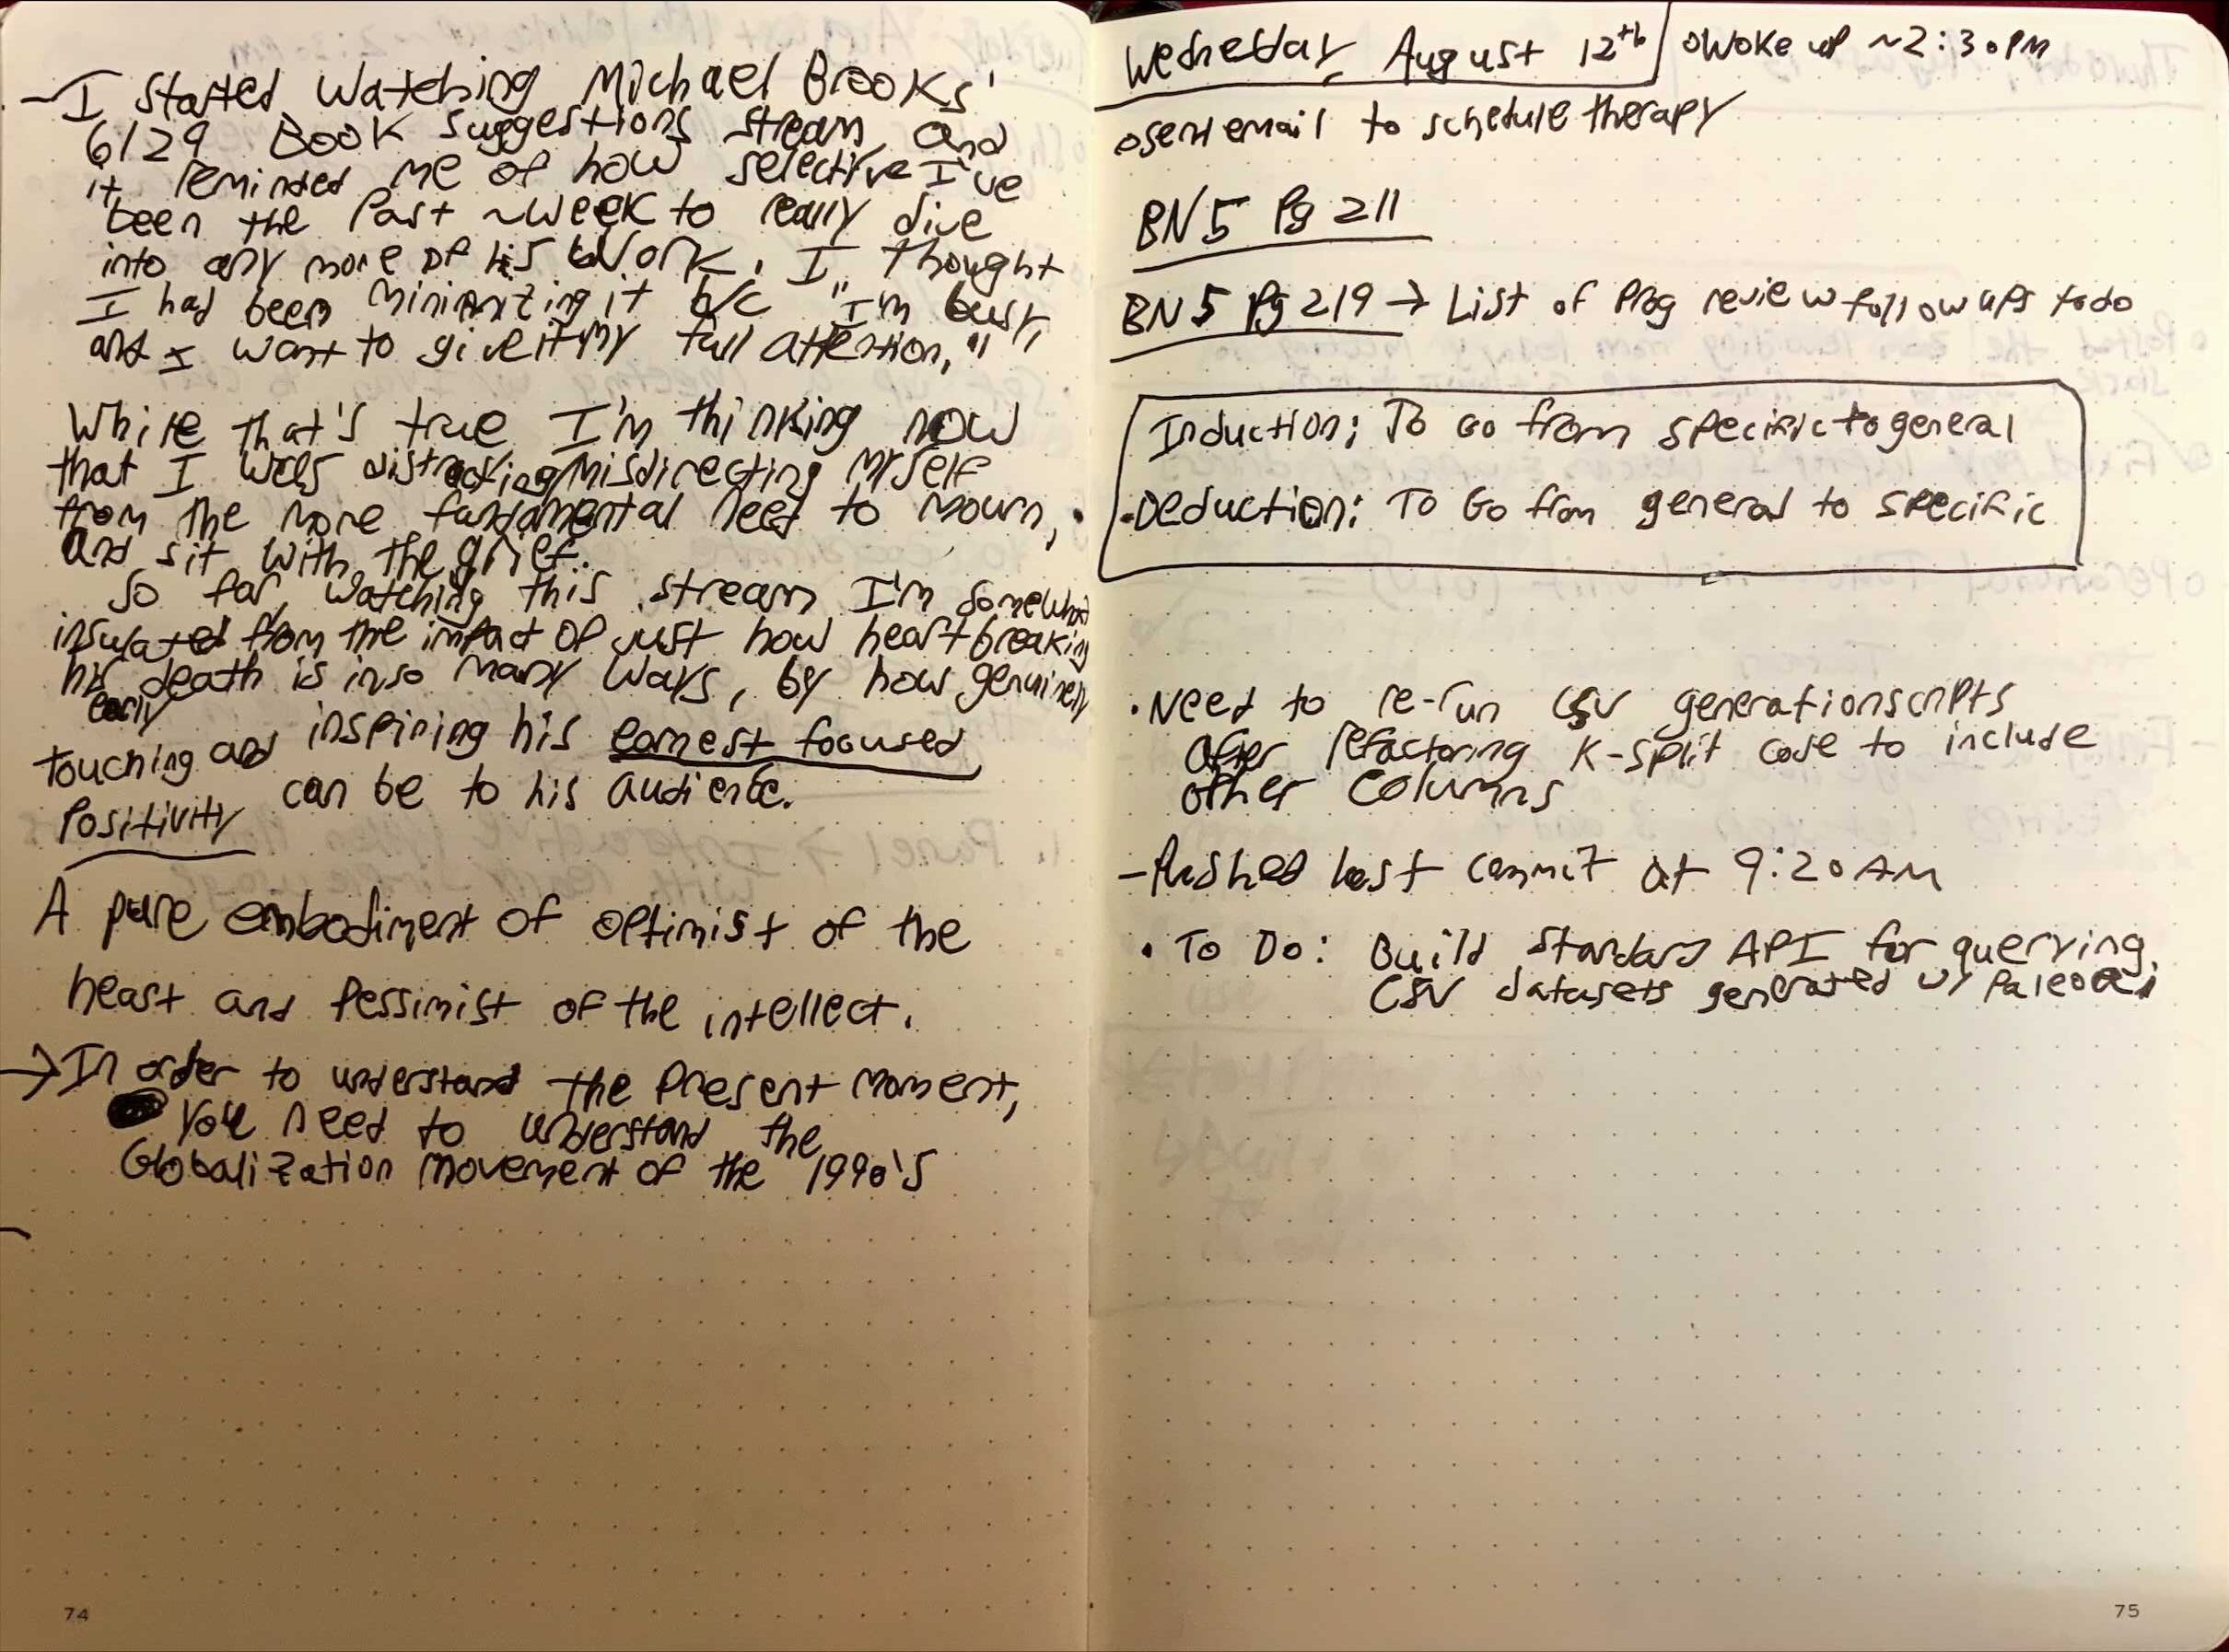 - I started watching Michael Brooks'
6/29 Book suggestions stream and
it reminded me of how selective I've
been the past ~week to really dive
into any more of his work. I thought
I had been minimizing it b/c "I'm busy,
and I want to give it my full attention,"
While that's true I'm thinking now
that I was distracting/misdirecting myself
from the more fundamental need to mourn,
and sit with the grief.
So far, watching this stream I'm somewhat
insulated from the impact of just how heartbreaking
his early death is in so many ways, by how genuinely
touching and inspiring his earnest focused
positivity can be to his audience.
A pure embodiment of optimist of the
heart and pessimist of the intellect.
→ In order to understand the present moment,
you need to understand the
Globalization movement of the 1990's
74
Wednesday, August 12th
o Woke up ~2:30PM
o sent email to schedule therapy
BN5 Pg 211
BN5 Pg 219 → List of Prog review follow ups to do
Induction: To Go from specific to general
Deduction: To Go from general to specific
• Need to re-run CSV generation scripts
after refactoring K-split code to include
other columns
- Pushed last commit at 9:20 AM
• To Do: Build standard API for querying
CSV datasets generated by
75